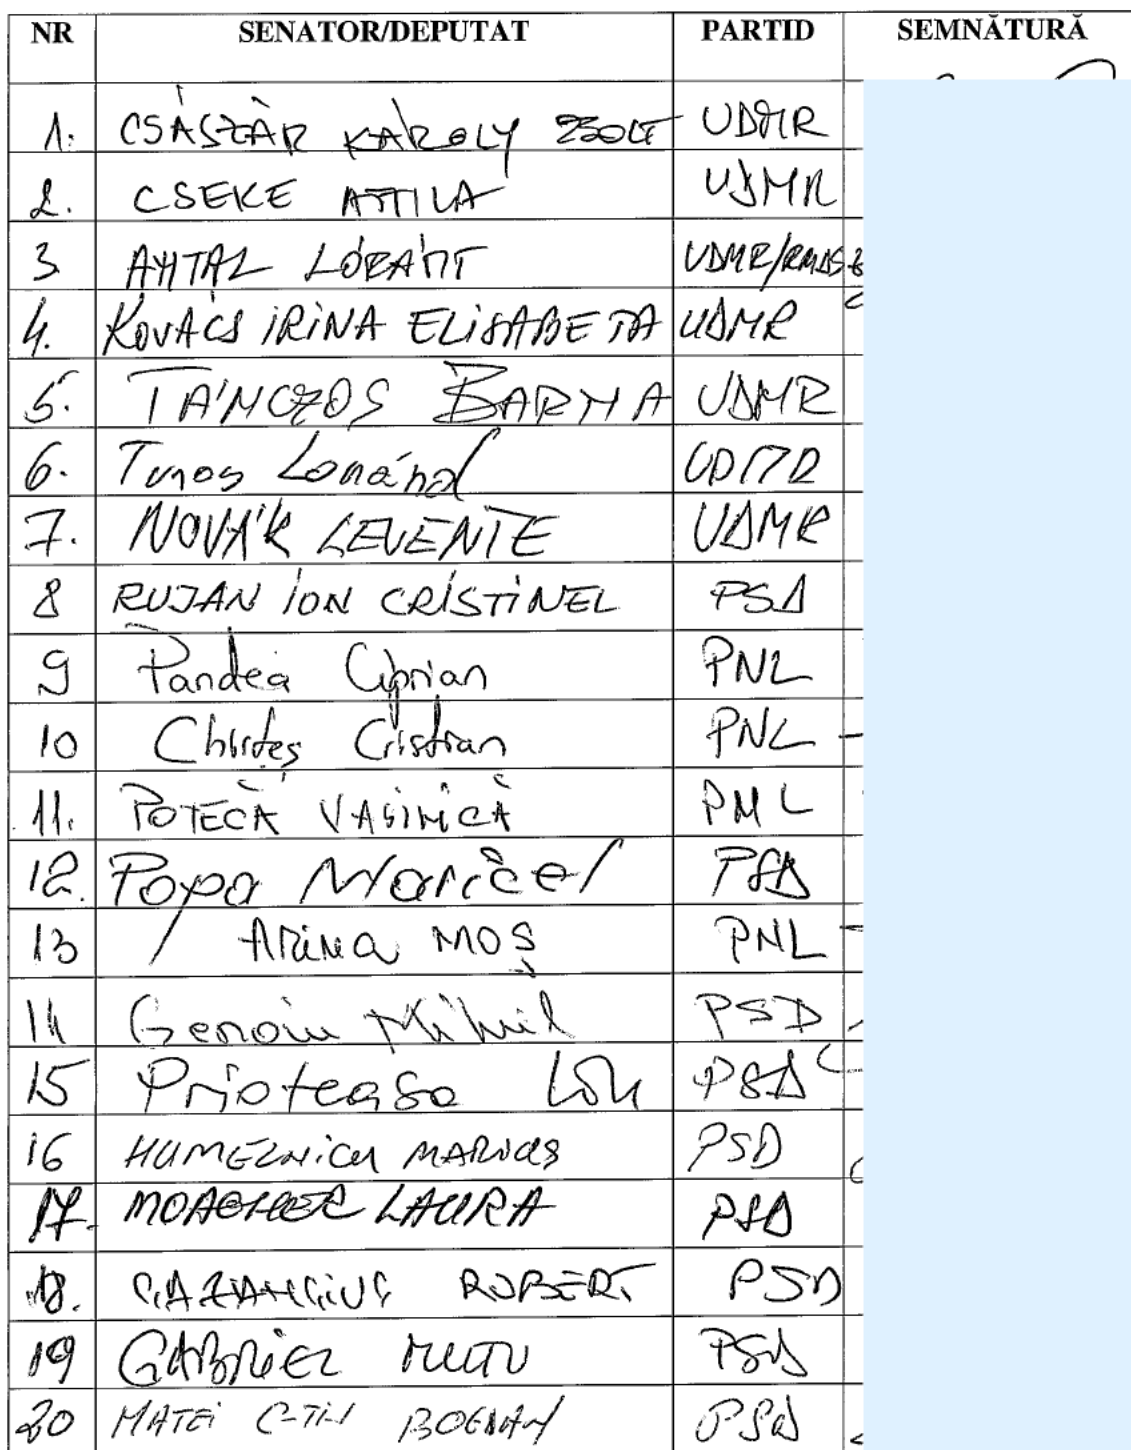 NR SENATOR/DEPUTAT PARTID SEMNĂTURĂ
1. CSÁSZÁR KÁROLY ZSOLT UDMR
2. CSEKE ATTILA UDMR
3 ANTAL LÓRÁNT UDMR/RMDSZ
4. KOVÁCS IRINA ELISABETA UDMR
5. TÁNCZOS BARNA UDMR
6. Turos Loránd UDMR
7. NOVÁK LEVENTE UDMR
8 RUJAN ION CRISTINEL PSD
9 Pandea Ciprian PNL
10 Chirteș Cristian PNL
11. POTECĂ VASILICĂ PNL
12. Popa Maricel PSD
13 Arina MOȘ PNL
14 Genoiu Mihail PSD
15 Prioteasa Ion PSD
16 HUMELNICU MARIUS PSD
17. MOAGHER LAURA PSD
18. CAZANCIUC ROBERT PSD
19 GABRIEL MUTU PSD
20 MATEI C-TIN BOGDAN PSD